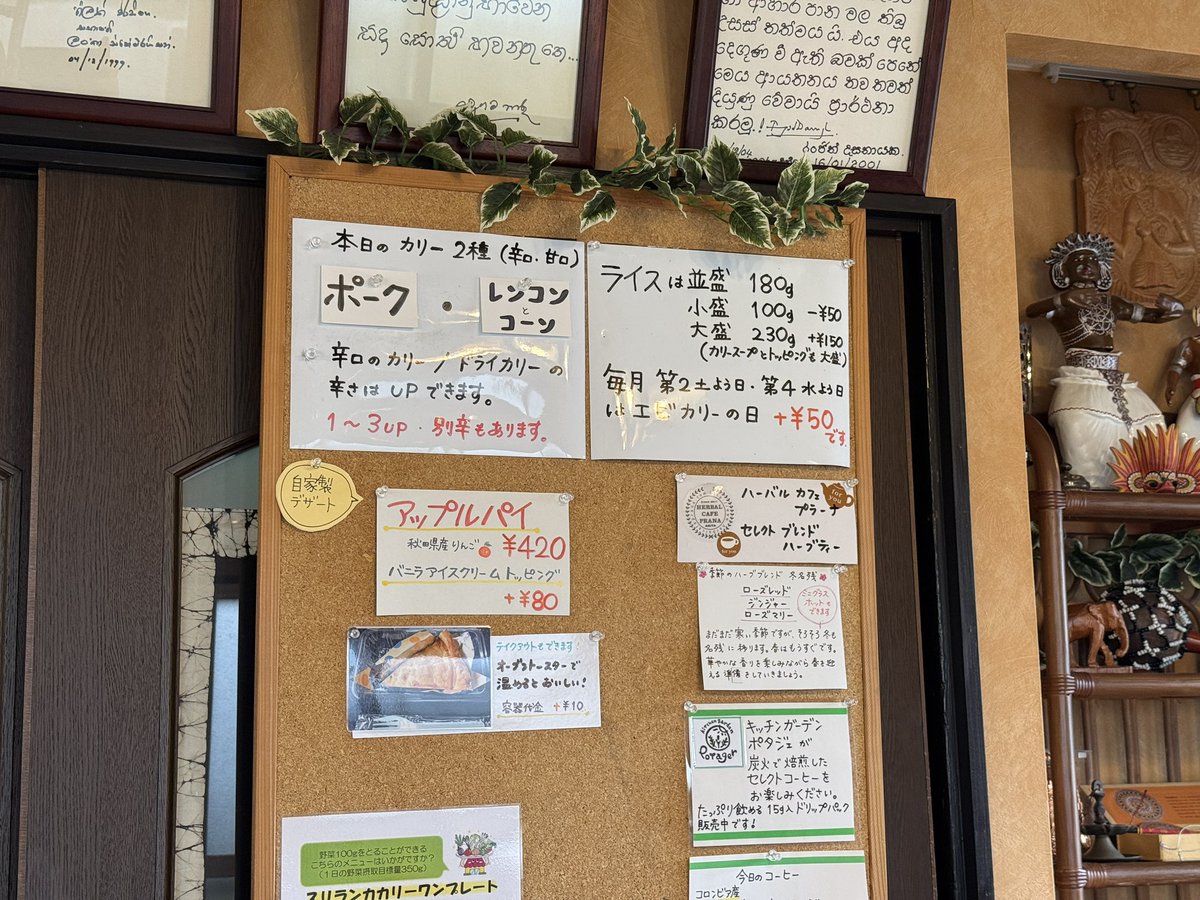 04/12/1999.
සැදූ සොමි භවන්තු තෙ...
දියුණු වේවායි ප්‍රාර්ථනා
කරමු.!
16/01/2001
本日の カリー 2種 (辛口・甘口)
ポーク ・ レンコン
と
コーン
辛口のカリー / ドライカリーの
辛さは UP できます。
1〜3up・別辛もあります。
ライスは並盛 180g
小盛 100g -¥50
大盛 230g +¥150
(カリースープとトッピングも大盛)
毎月 第2土よう日・第4水よう日
はエビカリーの日 +¥50
です
自家製
デザート
アップルパイ
秋田県産りんご ¥420
バニラアイスクリームトッピング
+¥80
テイクアウトもできます!
オーブントースターで
温めるとおいしい!
容器代金 +¥10
ハーバル カフェ
プラーナ
セレクト ブレンド
ハーブティー
for you
HERBAL
CAFE
PRANA
for you
季節のハーブブレンド 冬名残
ローズレッド
ジンジャー
ローズマリー
ミニグラス
ホットも
できます
まだまだ寒い季節ですが、そろそろ冬も
名残に移ります。春はもうすぐです。
華やかな香りを楽しみながら春を迎
える準備をしていきましょう。
Kitchen Garden
Potager
キッチンガーデン
ポタジェが
炭火で焙煎した
セレクトコーヒーを
お楽しみください。
たっぷり飲める15g入ドリップパック
販売中です!
今日のコーヒー
コロンビア産
野菜100gをとることができる
こちらのメニューはいかがですか?
(1日の野菜摂取目標量350g)
スリランカカリーワンプレート